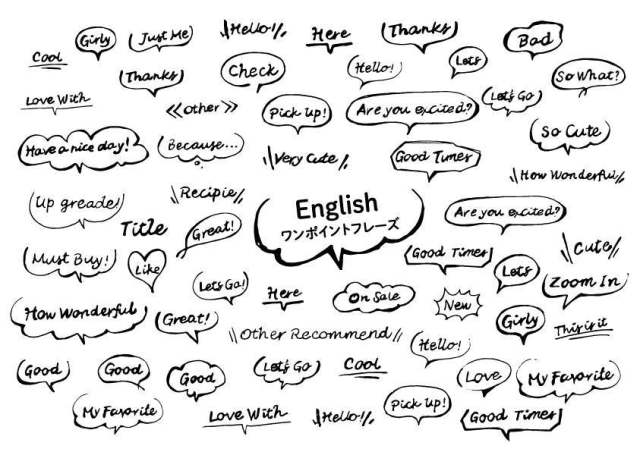 Cool
Girly
Just Me
Hello!
Here
Thanks
Bad
Thanks
Check
Hello!
Lets
So What?
Love With
Other
Pick Up!
Are you excited?
Let's Go
So Cute
Have a nice day!
Because...
Very Cute
Good Times
How Wonderful
Up greade
Recipie
Title
Great!
English
ワンポイントフレーズ
Are you excited?
Must Buy!
Like
Good Times
Cute
Let's Go!
Here
On Sale
New
Lets
Zoom In
How Wonderful
Great!
Other Recommend
Hello!
Girly
This is it
Good
Good
Good
Let's Go
Cool
Love
My Favorite
My Favorite
Love With
Hello!
Pick Up!
Good Times